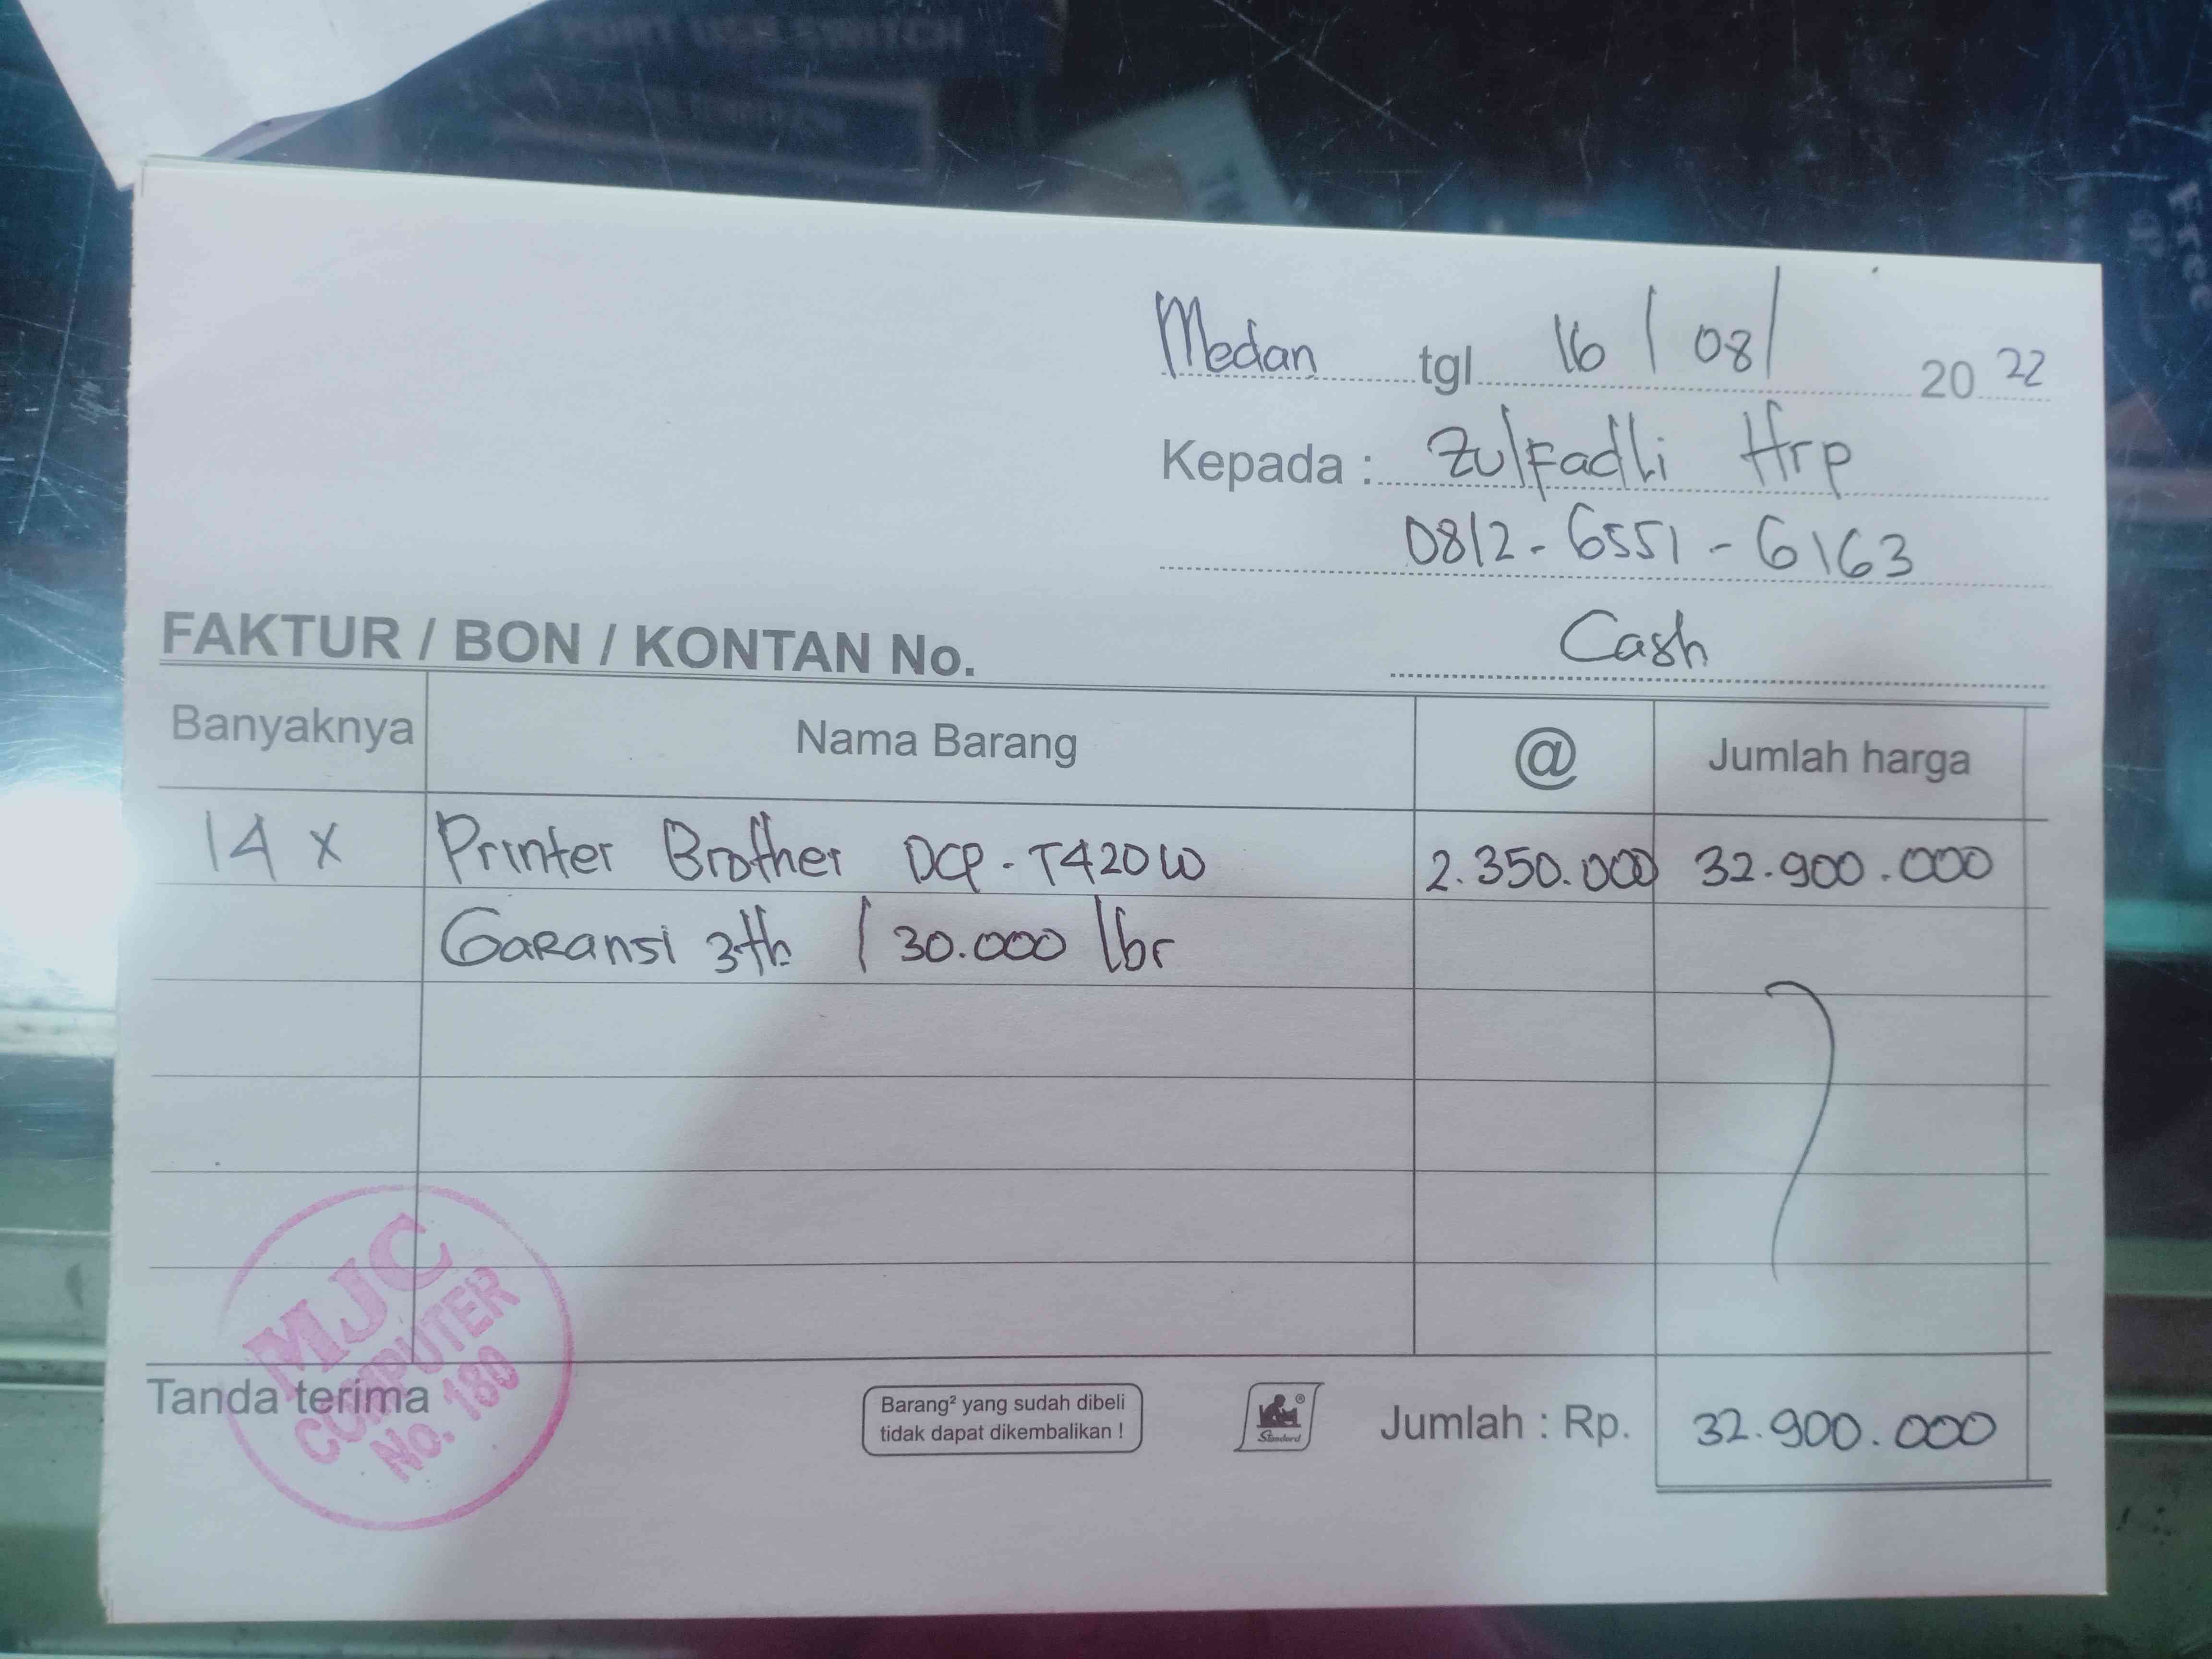 PORT USB SWITCH
Medan tgl 16 / 08 / 20 22
Kepada : Zulfadli Hrp
0812 - 6551 - 6163
FAKTUR / BON / KONTAN No. Cash
Banyaknya Nama Barang @ Jumlah harga
14 x Printer Brother DCP - T420W 2.350.000 32.900.000
Garansi 3th / 30.000 lbr
MJC
COMPUTER
No. 180
Tanda terima
Barang² yang sudah dibeli
tidak dapat dikembalikan !
Standard ®
Jumlah : Rp. 32.900.000